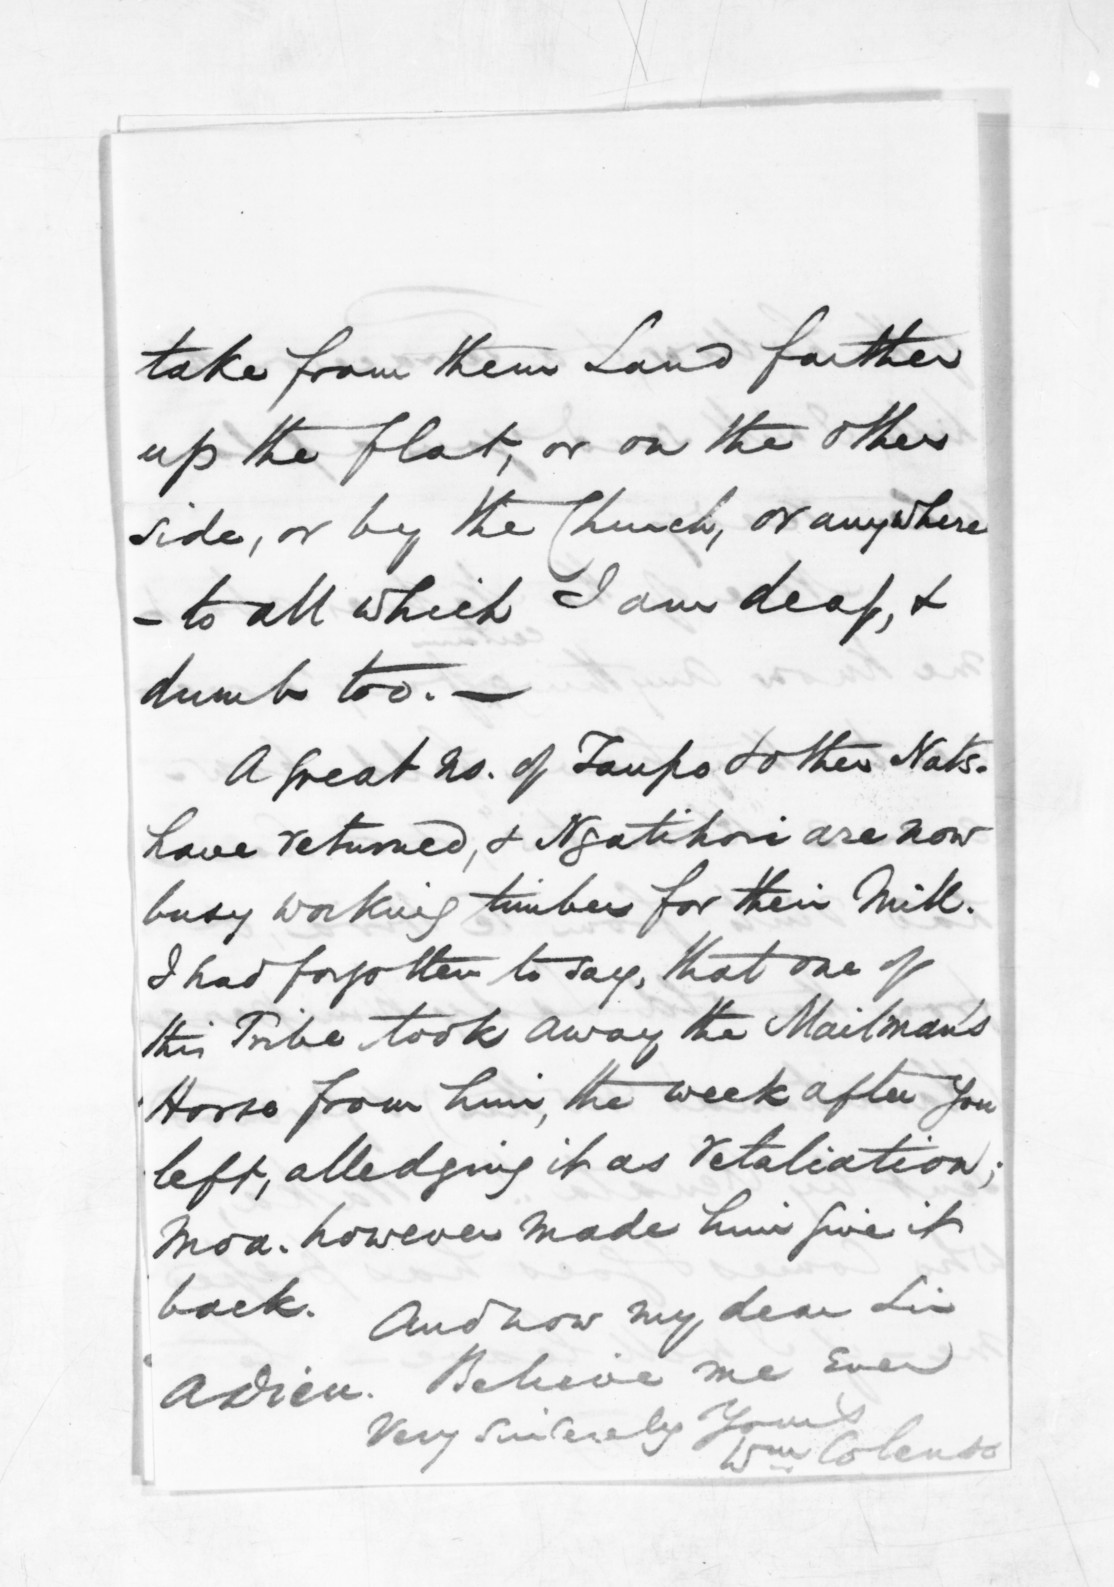 take from them Land farther
up the flat, or on the other
side, or by the Church, or anywhere
– to all which I am deaf, &
dumb too. —
A great no. of Taupo & other Nats.
have returned, & Ngatihori are now
busy working timber for their Mill.
I had forgotten to say, that one of
this Tribe took away the Mailman's
Horse from him, the week after you
left, alledging it as retaliation;
Moa. however made him give it
back. And now my dear Sir
Adieu. Believe me Ever
Very sincerely Yours
Wm Colenso